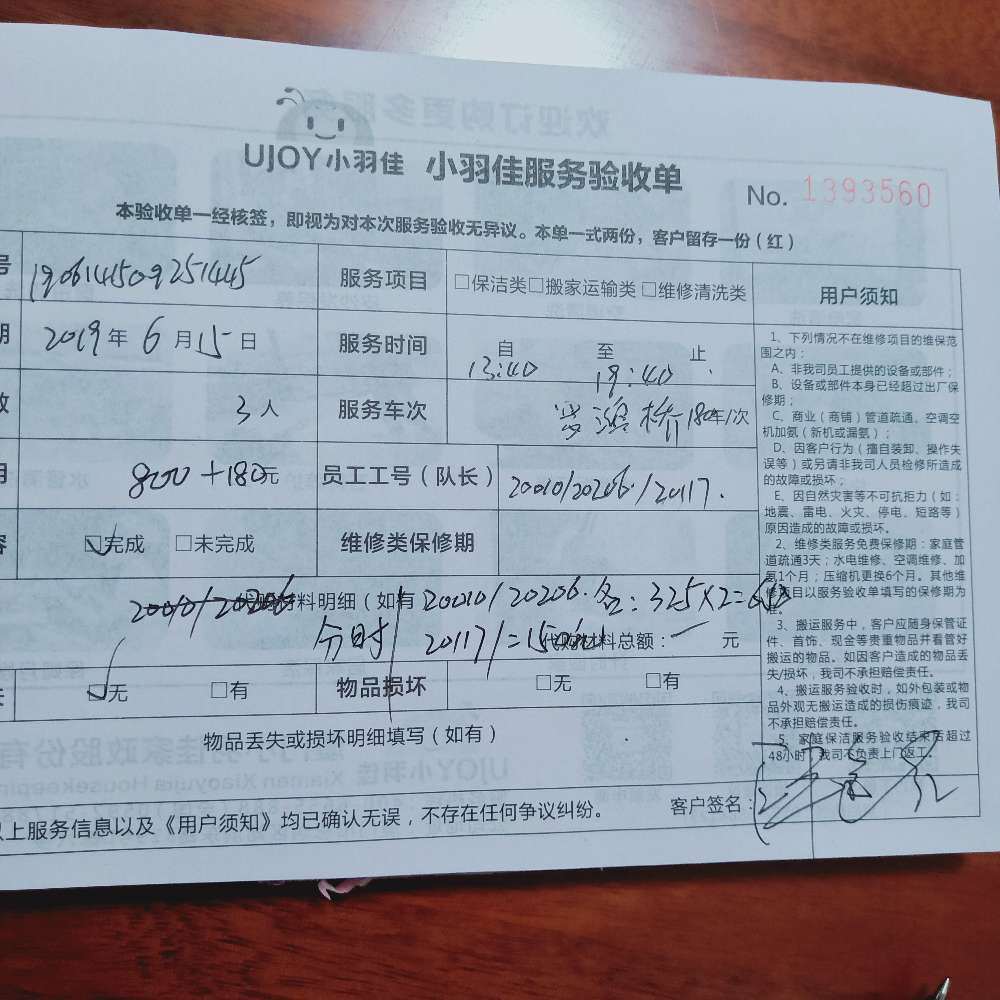 UJOY小羽佳 小羽佳服务验收单
No. 1393560
本验收单一经核签，即视为对本次服务验收无异议。本单一式两份，客户留存一份（红）
号 190614509251445 服务项目 □保洁类□搬家运输类□维修清洗类 用户须知
期 2019年6月15日 服务时间 自 至 止
13:40 19:40
数 3人 服务车次 180年/次
8200+180元 员工工号（队长） 20010/20206./20117.
☑完成 □未完成 维修类保修期
材料明细（如有 20010/20206.各:325×2=650
分时 20117/=150 代购材料总额： 元
☑无 □有 物品损坏 □无 □有
物品丢失或损坏明细填写（如有）
上服务信息以及《用户须知》均已确认无误，不存在任何争议纠纷。 客户签名：
1、下列情况不在维修项目的维保范
围之内：
A、非我司员工提供的设备或部件；
B、设备或部件本身已经超过出厂保
修期；
C、商业（商铺）管道疏通、空调空
机加氨（新机或漏氨）；
D、因客户行为（擅自装卸、操作失
误等）或另请非我司人员检修所造成
的故障或损坏；
E、因自然灾害等不可抗拒力（如：
地震、雷电、火灾、停电、短路等）
原因造成的故障或损坏。
2、维修类服务免费保修期：家庭管
道疏通3天；水电维修、空调维修、加
氨1个月；压缩机更换6个月。其他维
修项目以服务验收单填写的保修期为
准。
3、搬运服务中，客户应随身保管证
件、首饰、现金等贵重物品并看管好
搬运的物品。如因客户造成的物品丢
失/损坏，我司不承担赔偿责任。
4、搬运服务验收时，如外包装或物
品外观无搬运造成的损伤痕迹，我司
不承担赔偿责任。
5、家庭保洁服务验收结束后超过
48小时，我司不负责上门返工。